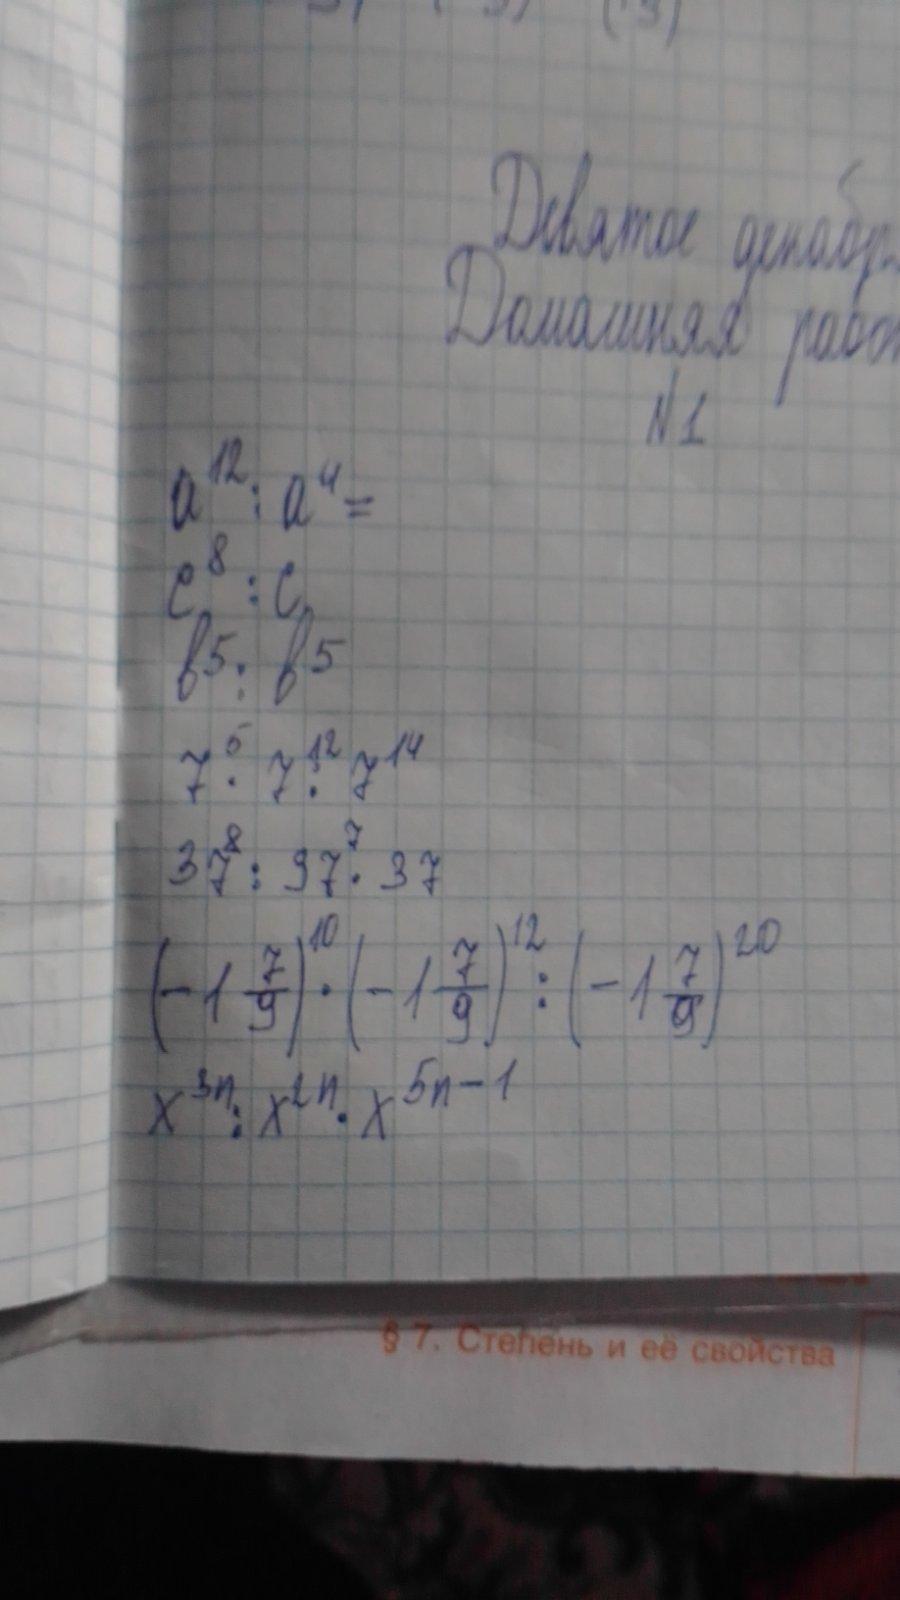 Девятое декабр
Домашняя работ
N 1
a¹² : a⁴ =
c⁸ : c
b⁵ : b⁵
7⁵ · 7¹² : 7¹⁴
37⁸ : 37⁷ · 37
(-1 7/9)¹⁰ · (-1 7/9)¹² : (-1 7/9)²⁰
x³ⁿ : x²ⁿ · x⁵ⁿ⁻¹
§ 7. Степень и её свойства